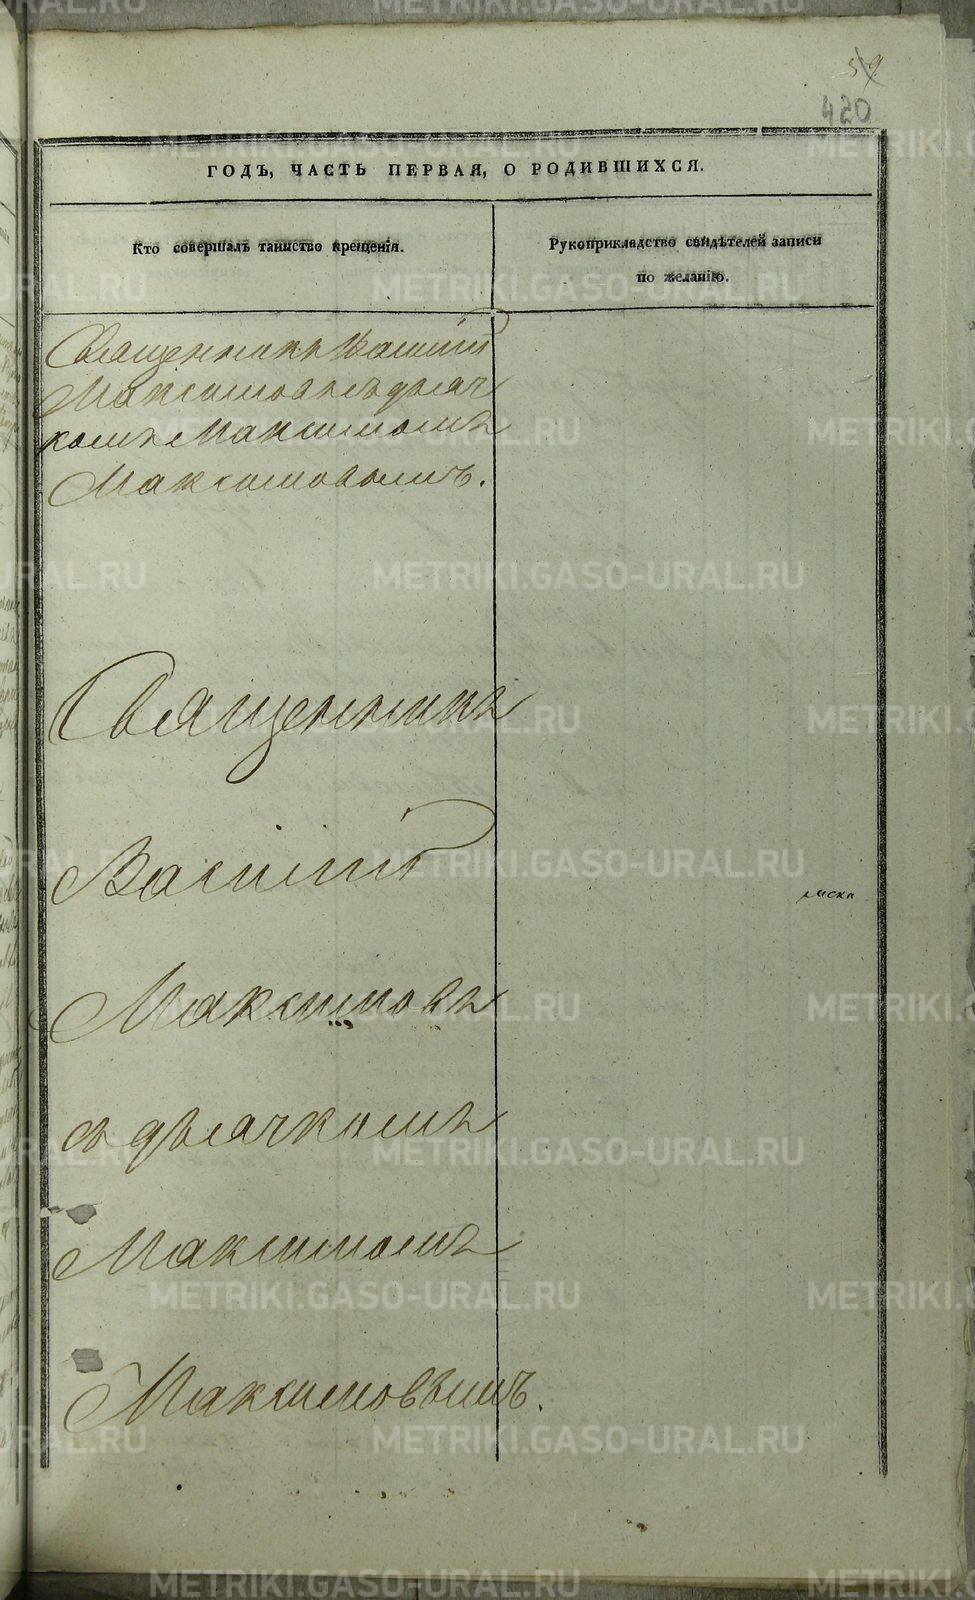 59
420
ГОДЪ, ЧАСТЬ ПЕРВАЯ, О РОДИВШИХСЯ.
Кто совершалъ таинство крещенія.
Рукоприкладство свидѣтелей записи
по желанію.
Священникъ Василій
Максимовъ съ дьяч
комъ Максимомъ
Максимовымъ.
Священникъ
Василій
Максимовъ
съ дьячкомъ
Максимомъ
Максимовымъ.
METRIKI.GASO-URAL.RU